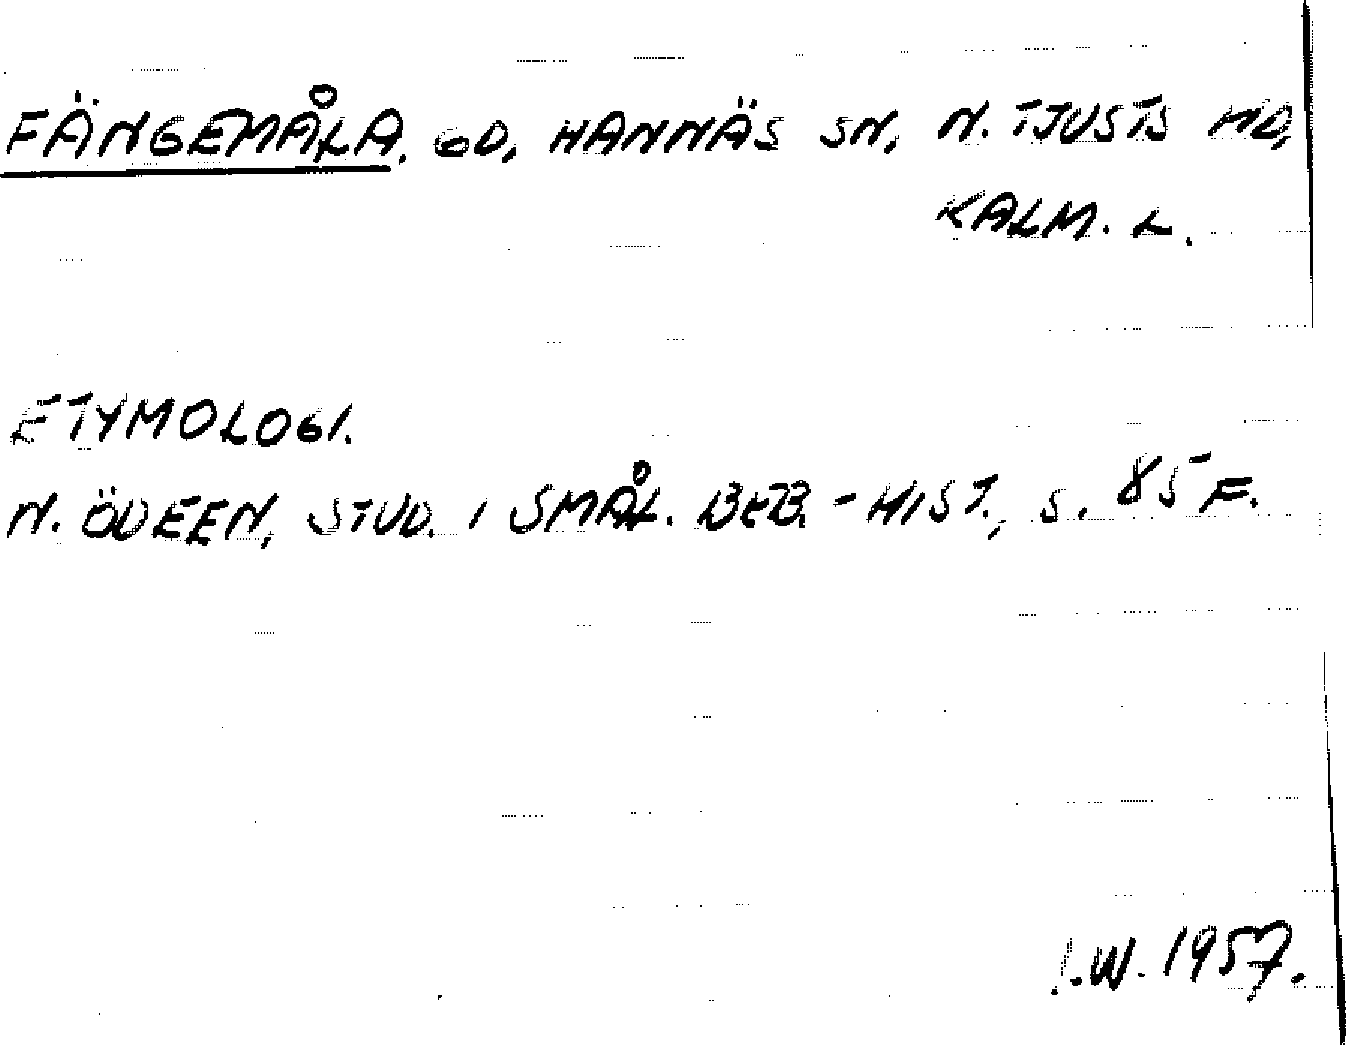 FÄNGEMÅLA. GD, HANNÄS SN, N. TJUSTS HD,
KALM. L.
ETYMOLOGI.
N. ÖDEEN, STUD. I SMÅL. BEB.-HIST., S. 85 F.
I.W. 1957.